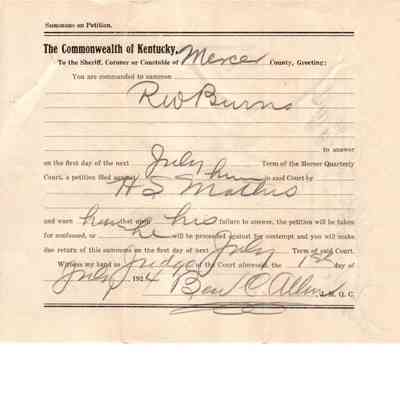 Summons on Petition.
The Commonwealth of Kentucky,
To the Sheriff, Coroner or Constable of Mercer County, Greeting:
You are commanded to summon
R W Burns
to answer
on the first day of the next July Term of the Mercer Quarterly
Court, a petition filed against him in said Court by
H S Mathis
and warn him that upon his failure to answer, the petition will be taken
for confessed, or he will be proceeded against for contempt and you will make
due return of this summons on the first day of next July Term of said Court.
Witness my hand as Judge of the Court aforesaid, the 1st day of
July 1924 Ben C. Allin J. M. Q. C.